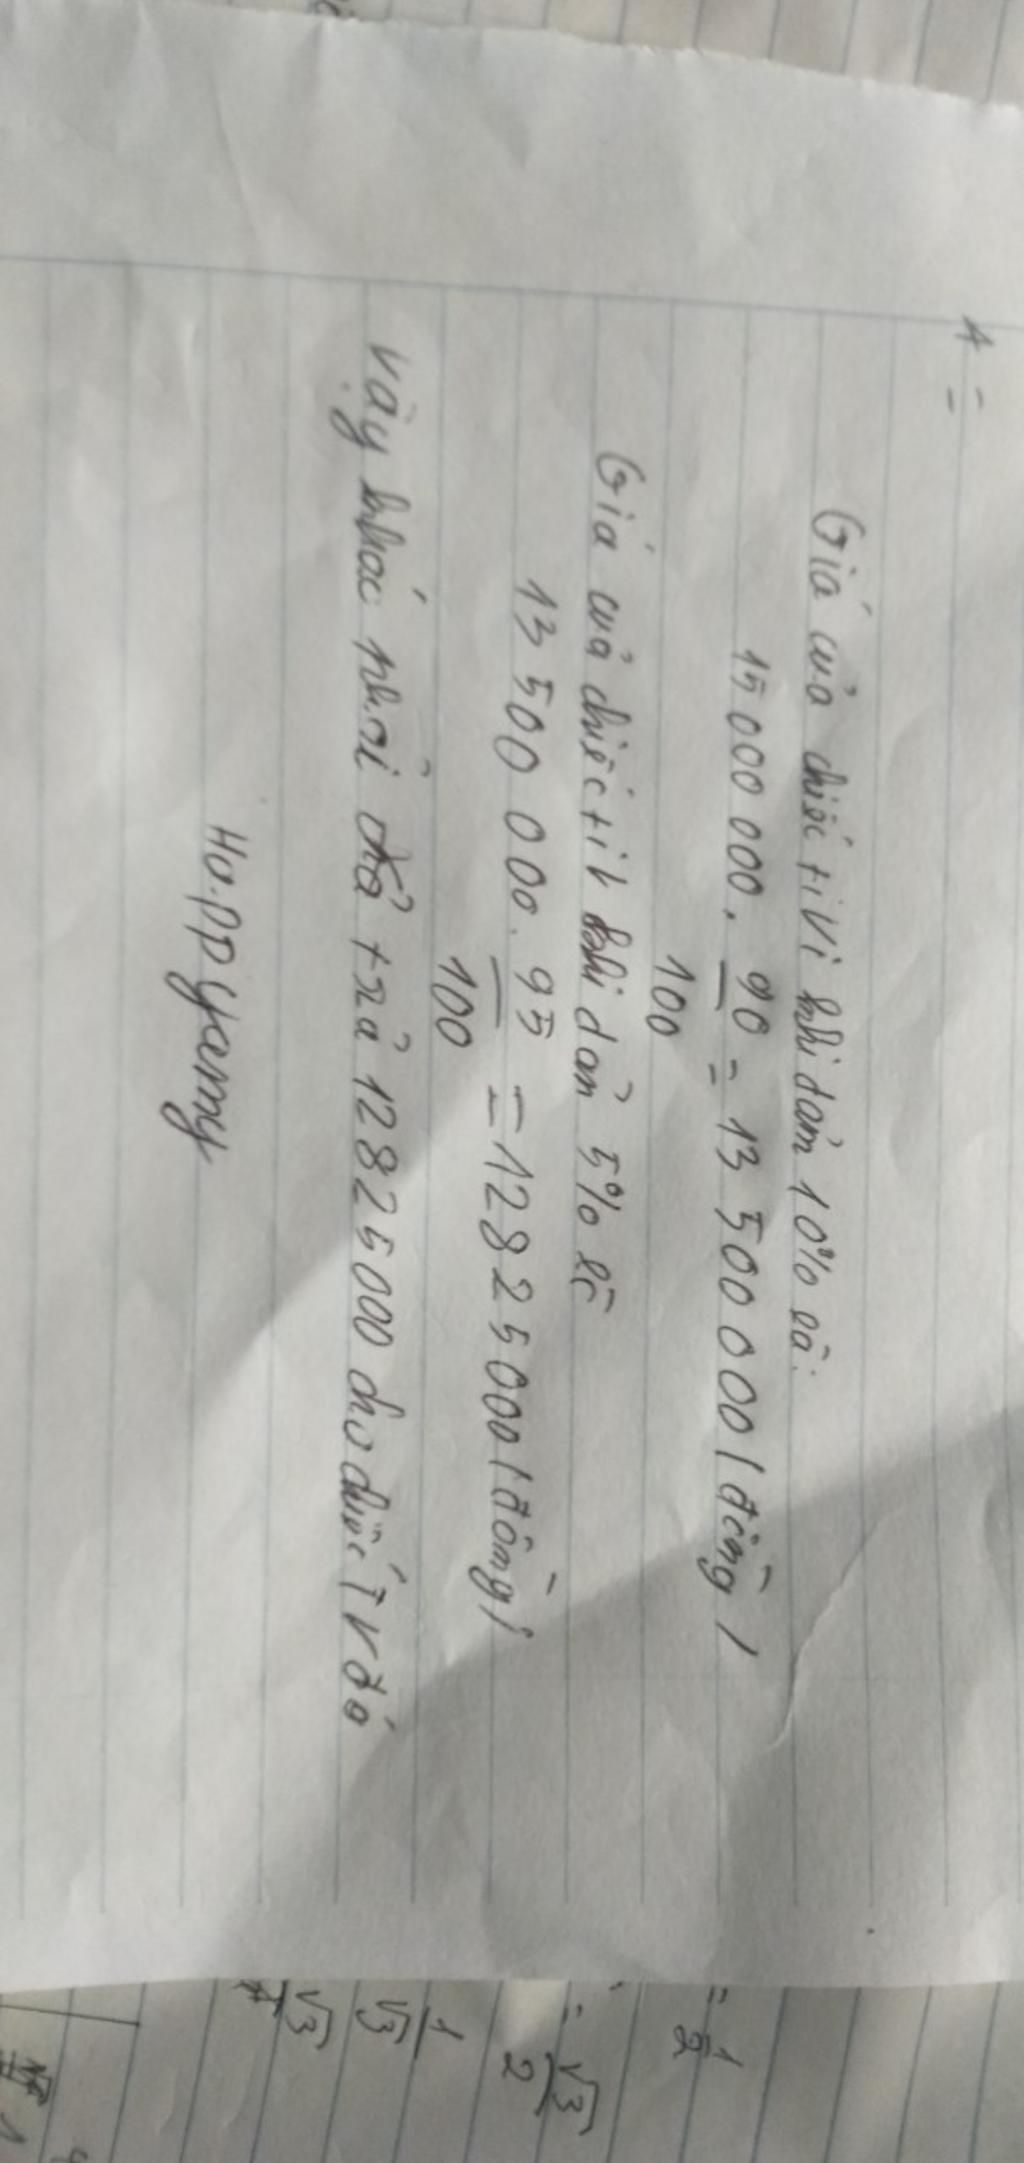 A =
Giá của chiếc tivi khi dảm 10% là:
15 000 000. 90/100 = 13 500 000 (đồng)
Giá của chiếc tiv khi dản 5% là
13 500 000. 95/100 = 12825000 (đồng)
Vậy khác phải trả 12825000 cho chiếc TV đó
= 1/2
= √3/2
1/√3
√3